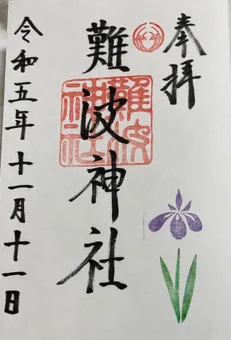 奉拝
難波神社
難波
神社
令和五年十一月十一日